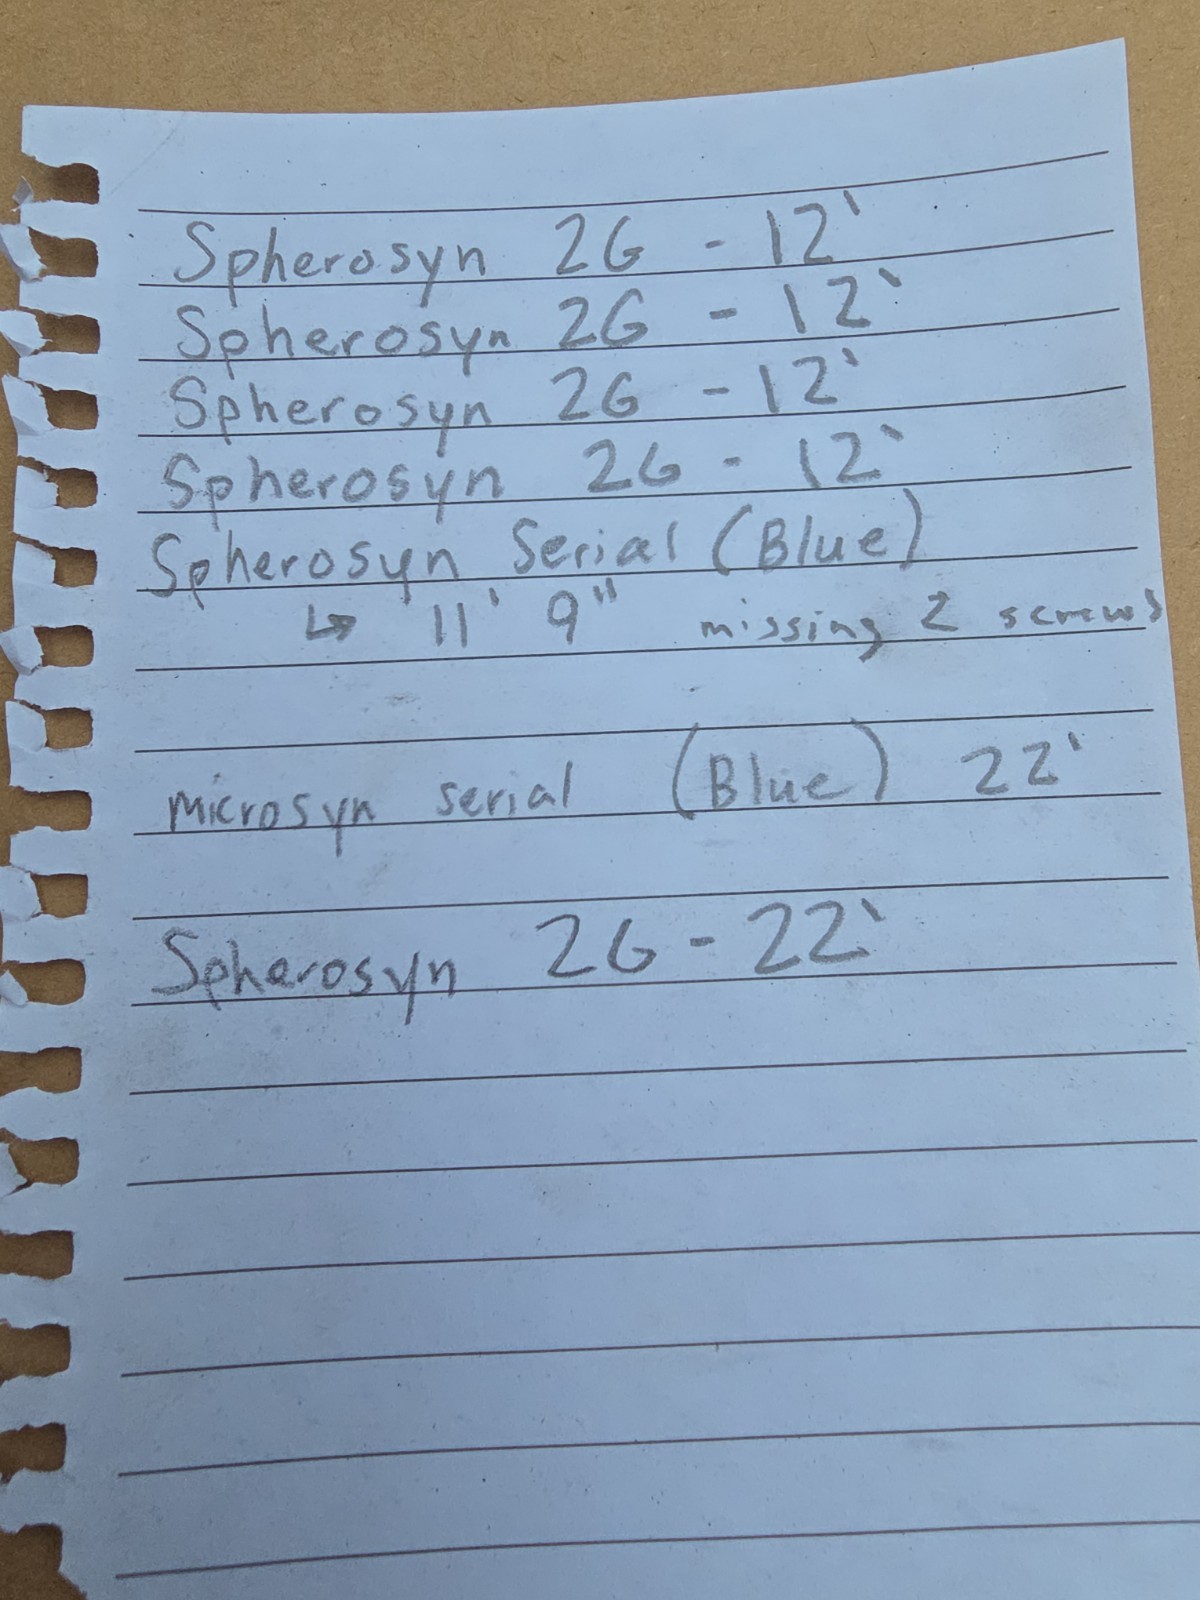 Spherosyn 2G - 12'
Spherosyn 2G - 12'
Spherosyn 2G - 12'
Spherosyn 2G - 12'
Spherosyn Serial (Blue)
↳ 11' 9" missing 2 screws
microsyn serial (Blue) 22'
Spherosyn 2G - 22'